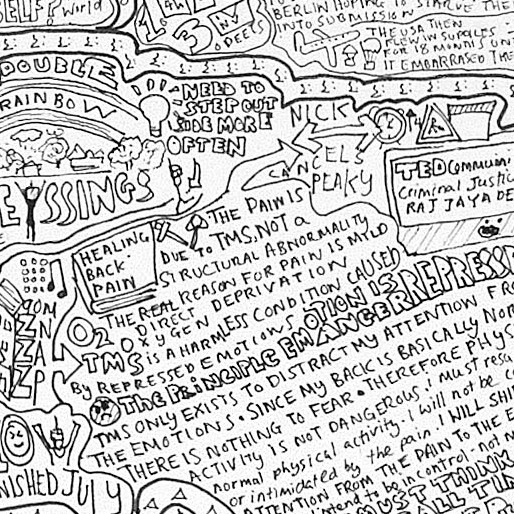 SELF? world
1.5
DEELS
BERLIN HOPING TO STARVE THE
INTO SUBMISSION
THE USA THEN
FLEW IN SUPPLIES
FOR 18 MONTHS UNT
IT EMBARRASED THE
DOUBLE
RAINBOW
NEED TO
STEP OUT
SIDE MORE
OFTEN
NICK
CANCELS
PEAKY
TED Communi
Criminal Justic
RAJ JAYADE
EYSSINGS
HEALING
BACK
PAIN
THE PAIN IS
DUE TO TMS, NOT a
STRUCTURAL ABNORMALITY
THE REAL REASON FOR PAIN IS MILD
OXYGEN DEPRIVATION
DIRECT
O2
TMS is A HARMLESS CONDITION CAUSED
BY REPRESSED EMOTIONS
THE PRINCIPLE EMOTION IS
REPRESSE
ANGER
TMS ONLY EXISTS TO DISTRACT MY ATTENTION FR
THE EMOTIONS. SINCE MY BACK IS BASICALLY NOR
THERE IS NOTHING TO FEAR. THEREFORE PHYS
ACTIVITY IS NOT DANGEROUS. i must resu
normal physical activity. I will not be
or intimidated by the pain. I WILL SHI
ATTENTION FROM THE PAIN TO THE E
intend to be in control - not
MUST THINK
ALL TI
NISHED JULY